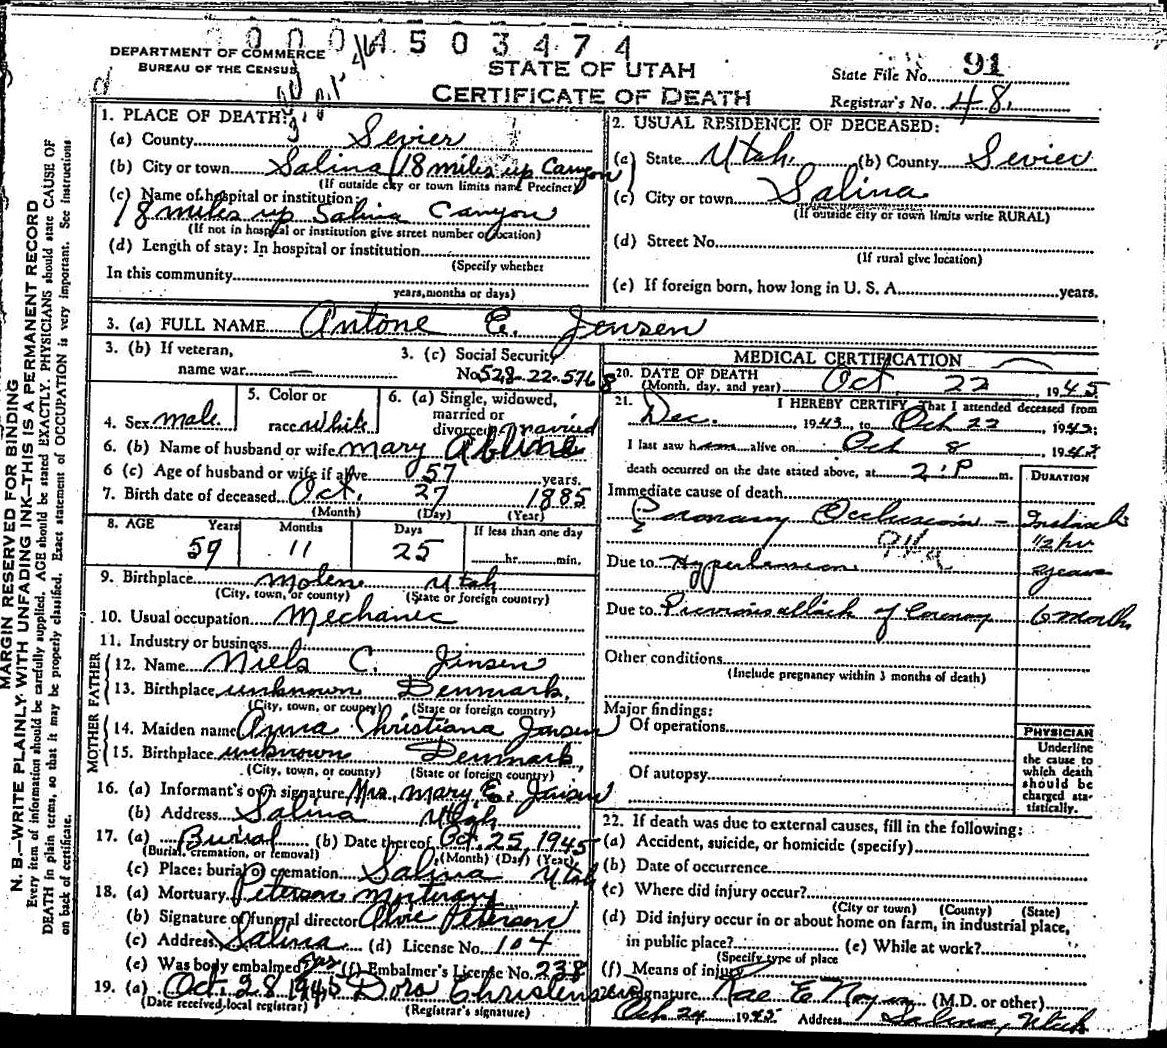 0004503474
DEPARTMENT OF COMMERCE
BUREAU OF THE CENSUS
STATE OF UTAH
CERTIFICATE OF DEATH
State File No. 91
Registrar's No. 48.
MARGIN RESERVED FOR BINDING
N. B.—WRITE PLAINLY, WITH UNFADING INK—THIS IS A PERMANENT RECORD
Every item of information should be carefully supplied. AGE should be stated EXACTLY. PHYSICIANS should state CAUSE OF
DEATH in plain terms, so that it may be properly classified. Exact statement of OCCUPATION is very important. See instructions
on back of certificate.
1. PLACE OF DEATH:
(a) County Sevier
(b) City or town Salina (18 miles up Canyon)
(If outside city or town limits name Precinct)
(c) Name of hospital or institution:
18 miles up Salina Canyon
(If not in hospital or institution give street number or location)
(d) Length of stay: In hospital or institution
(Specify whether
In this community
years, months or days)
2. USUAL RESIDENCE OF DECEASED:
(a) State Utah. (b) County Sevier
(c) City or town Salina
(If outside city or town limits write RURAL)
(d) Street No.
(If rural give location)
(e) If foreign born, how long in U. S. A. years.
3. (a) FULL NAME Antone E. Jensen
3. (b) If veteran,
name war —
3. (c) Social Security
No. 528-22-5768
4. Sex male
5. Color or
race white
6. (a) Single, widowed,
married or
divorced married
6. (b) Name of husband or wife mary
6 (c) Age of husband or wife if alive 57 years.
7. Birth date of deceased Oct. 27 1885
(Month) (Day) (Year)
8. AGE Years Months Days If less than one day
59 11 25 hr. min.
9. Birthplace Molene Utah
(City, town, or county) (State or foreign country)
10. Usual occupation Mechanic
11. Industry or business
FATHER
12. Name Niels C. Jensen
13. Birthplace unknown Denmark.
(City, town, or county) (State or foreign country)
MOTHER
14. Maiden name Anna Christiana Jensen
15. Birthplace unknown Denmark,
(City, town, or county) (State or foreign country)
16. (a) Informant's own signature Mrs. Mary E. Jensen
(b) Address Salina Utah
17. (a) Burial (b) Date thereof Oct. 25, 1945
(Burial, cremation, or removal) (Month) (Day) (Year)
(c) Place: burial or cremation Salina Utah
18. (a) Mortuary Peterson Mortuary
(b) Signature of funeral director Alvie Peterson
(c) Address Salina (d) License No. 104
(e) Was body embalmed yes (f) Embalmer's License No. 238
19. (a) Oct 28 1945 Dora Christensen
(Date received local registrar) (Registrar's signature)
MEDICAL CERTIFICATION
20. DATE OF DEATH
(Month, day, and year) Oct. 22 1945
21. I HEREBY CERTIFY, That I attended deceased from
Dec. 1943, to Oct 22 1945;
I last saw him alive on Oct 8 1945;
death occurred on the date stated above, at 2:P m.
DURATION
Immediate cause of death
Coronary Occlusion –
1/2 hr
Due to Hypertension 2 years
Due to Previous attack of Coronary 6 months
Other conditions
(Include pregnancy within 3 months of death)
Major findings:
Of operations
Of autopsy
PHYSICIAN
Underline
the cause to
which death
should be
charged sta-
tistically.
22. If death was due to external causes, fill in the following:
(a) Accident, suicide, or homicide (specify)
(b) Date of occurrence
(c) Where did injury occur?
(City or town) (County) (State)
(d) Did injury occur in or about home on farm, in industrial place,
in public place? (e) While at work?
(Specify type of place
(f) Means of injury
Signature Rae E. Noyes (M.D. or other)
Oct 24 1945 Address Salina, Utah